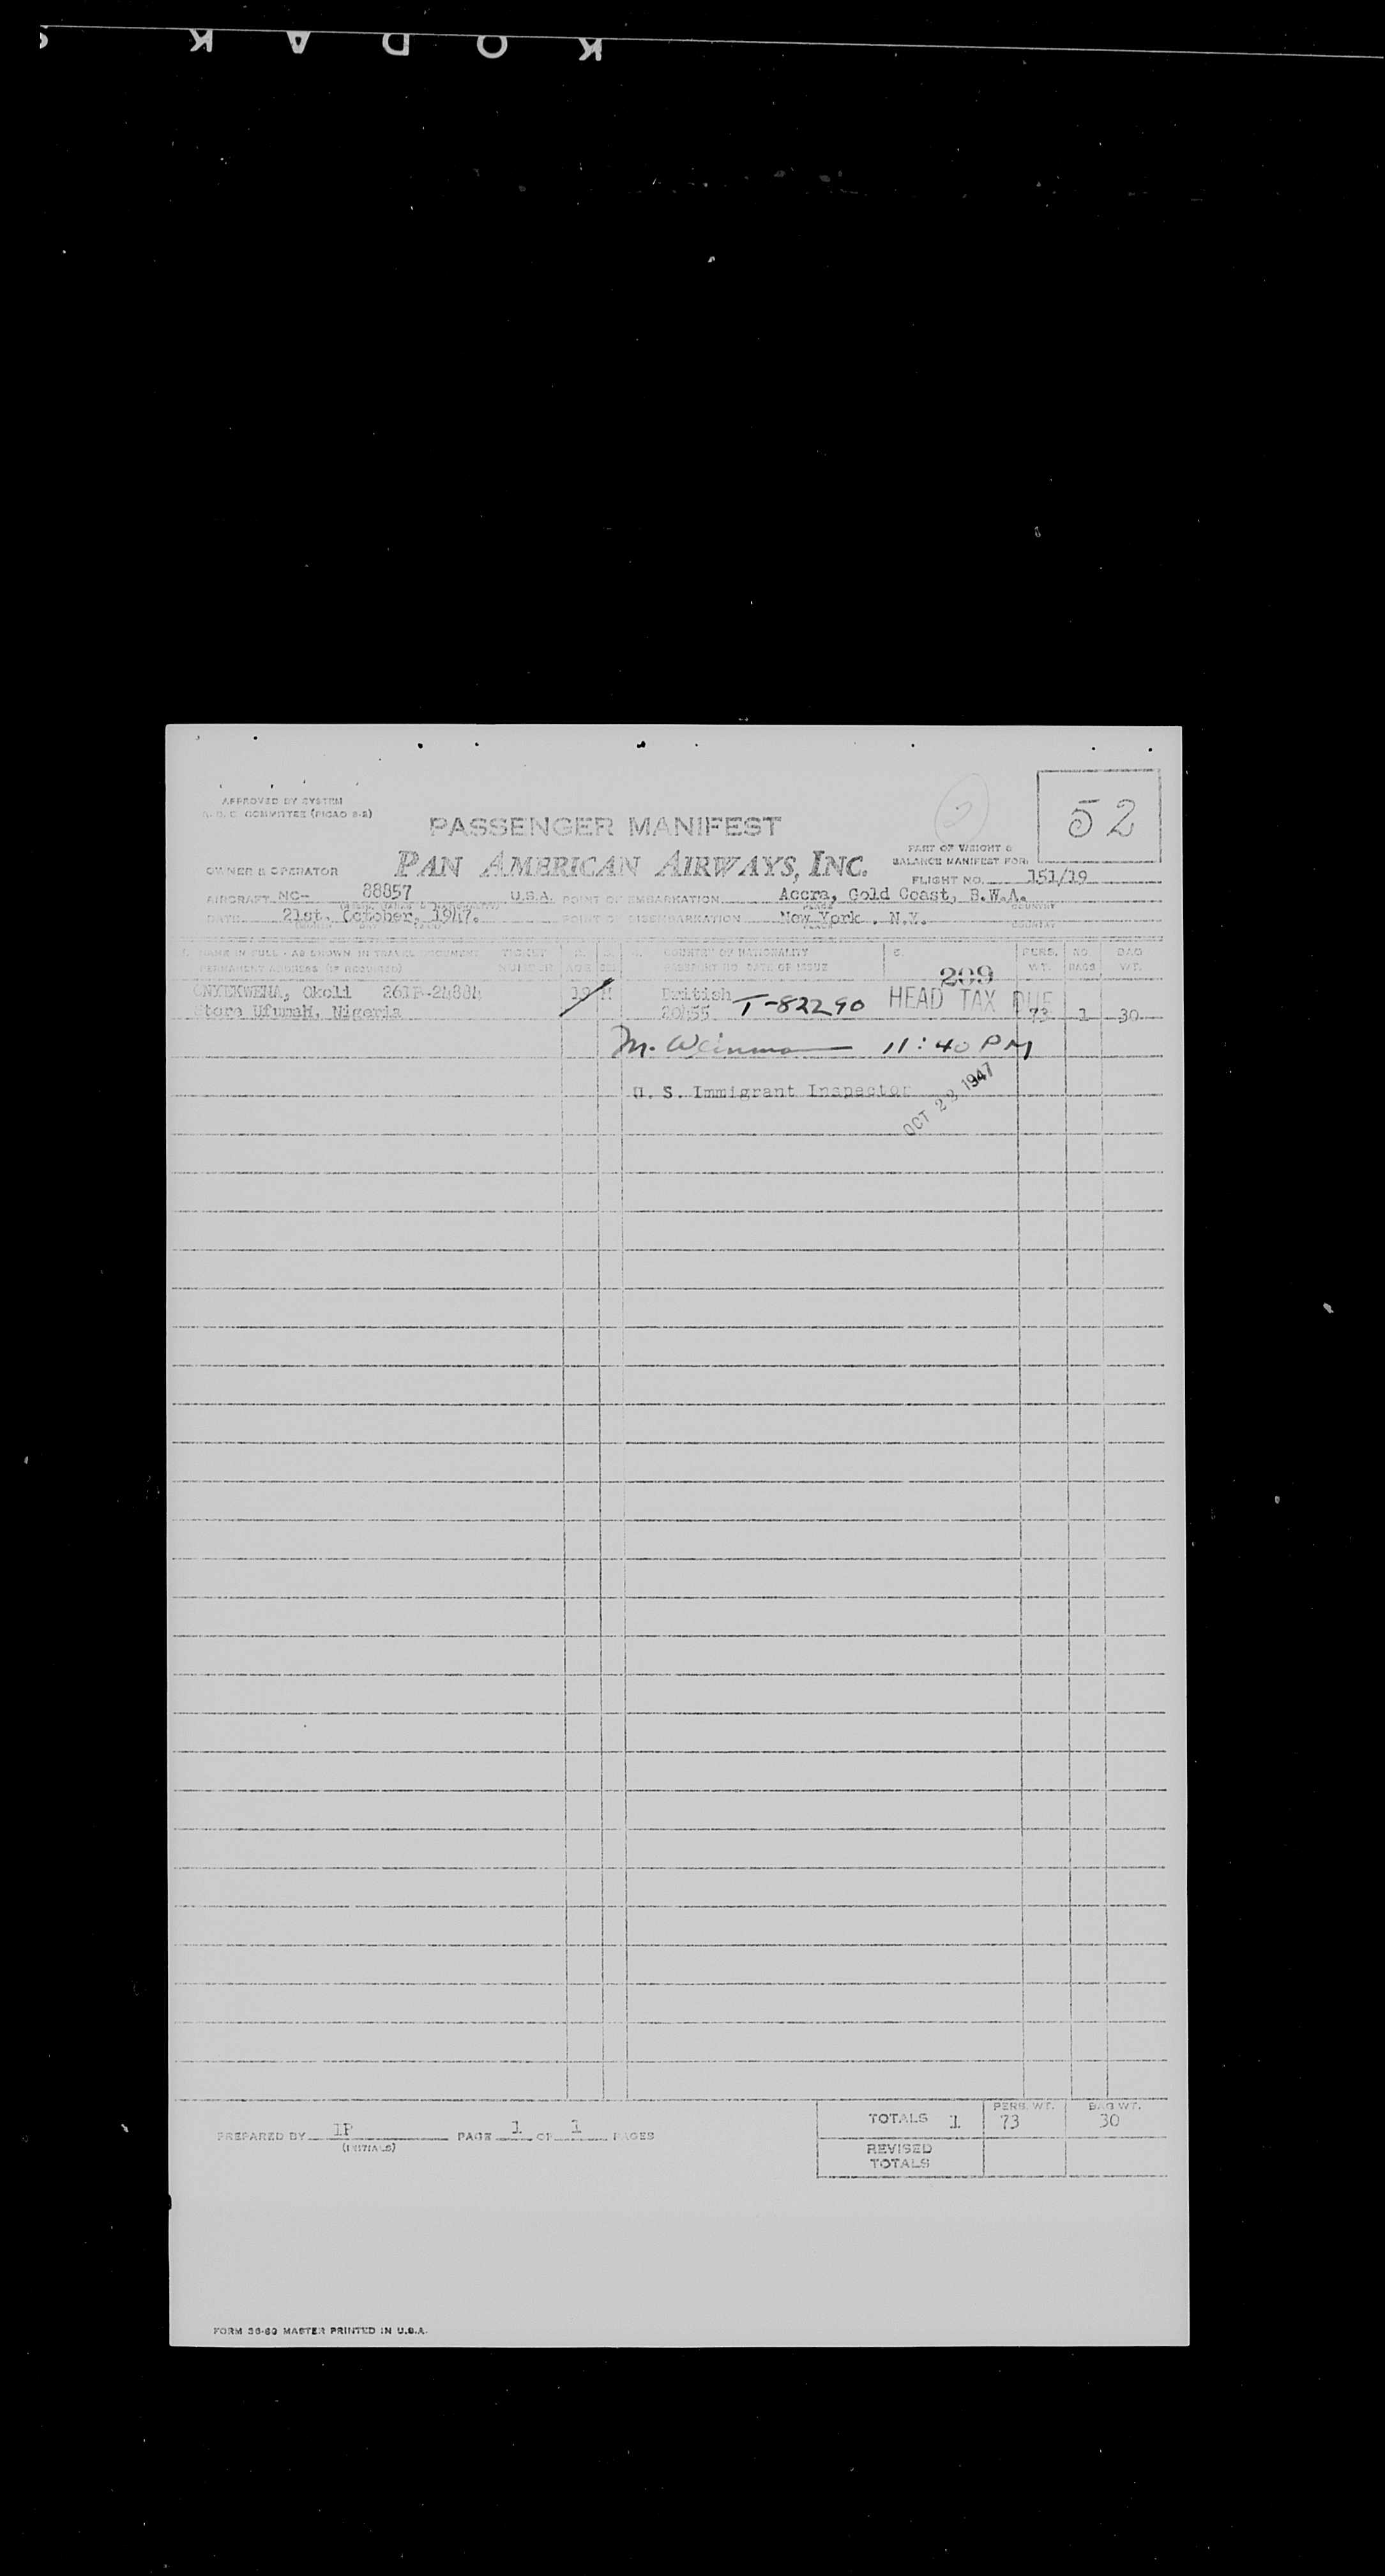 KODAK S
APPROVED BY SYSTEM
COMMITTEE (PICAO 2-2)
PASSENGER MANIFEST
2
52
PART OF WEIGHT &
BALANCE MANIFEST FOR:
OWNER & OPERATOR
PAN AMERICAN AIRWAYS, INC.
FLIGHT NO. 151/19
AIRCRAFT NC- 88857 U.S.A. POINT OF EMBARKATION Accra, Gold Coast, B.W.A.
PLACE COUNTRY
DATE 21st. October, 1947. POINT OF DISEMBARKATION New York, N.Y.
PLACE COUNTRY
NAME IN FULL - AS SHOWN IN TRAVEL DOCUMENT TICKET COUNTRY OF NATIONALITY PERS. NO. BAG
PERMANENT ADDRESS (IF REQUIRED) NUMBER AGE PASSPORT NO. DATE OF ISSUE WT. BAGS WT.
209
ONYEKWENA, Okoli 261B-24884 19 M British T-82290 HEAD TAX DUE
Store Ufumah, Nigeria 20455 73 1 30
M. Weinman 11:40 PM
U. S. Immigrant Inspector
OCT 22 1947
TOTALS 1 PERS. WT. 73 BAG WT. 30
PREPARED BY IP PAGE 1 OF 1 PAGES
(INITIALS)
REVISED
TOTALS
FORM 36-60 MASTER PRINTED IN U.S.A.